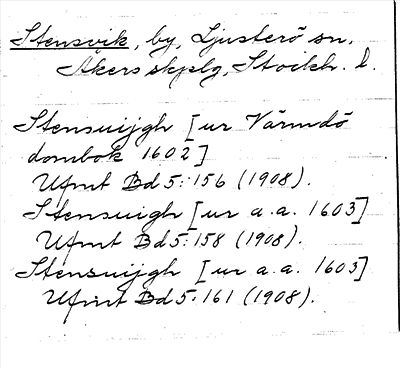 Stensvik, by, Ljusterö sn.
Åkers skplg, Stockh. l.
Stensuijgh [ur Värmdö
dombok 1602]
Ufmt Bd 5:156 (1908).
Stensuigh [ur a.a. 1603]
Ufmt Bd 5:158 (1908).
Stensuijgh [ur a.a. 1603]
Ufmt Bd 5:161 (1908).